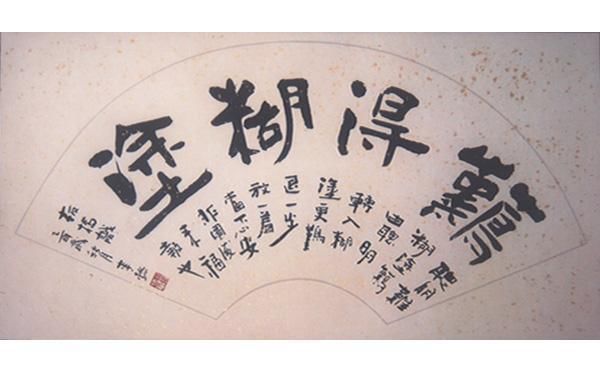 難得糊塗
聰明難
糊塗難
由聰明
轉入糊
塗更難
退一步
放一着
當下心安
非圖後
來福
報也
板橋識